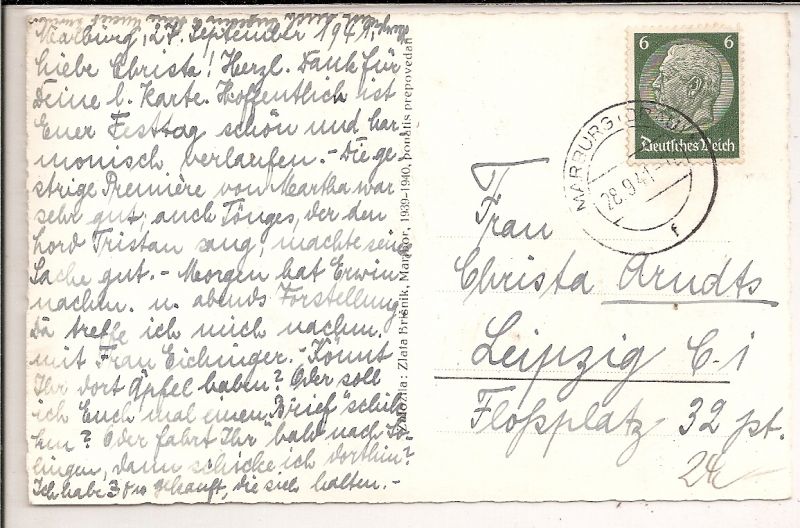 Marburg, 27. September 1941.
Liebe Christa! Herzl. Dank für
Deine l. Karte. Hoffentlich ist
Euer Festtag schön und har-
monisch verlaufen. - Die ge-
strige Première von Martha war
sehr gut, auch Tönges, der den
Lord Tristan sang, machte seine
Sache gut. - Morgen hat Erwin
nachm. u. abends Vorstellung.
Da treffe ich mich nachm.
mit Frau Eichinger. - Könnt
Ihr dort Äpfel haben? Oder soll
ich Euch mal einen "Brief" schik-
ken? Oder fahrt Ihr bald nach So-
lingen, dann schicke ich dorthin?
Ich habe 30 gekauft, die sich halten. -
Založila: Zlata Brišnik, Maribor, 1939-1940, ponatis prepovedan
6 6
Deutsches Reich
MARBURG (DRAU)
28.9.41
f
Frau
Christa Arndts
Leipzig C-1
Floßplatz 32 pt.